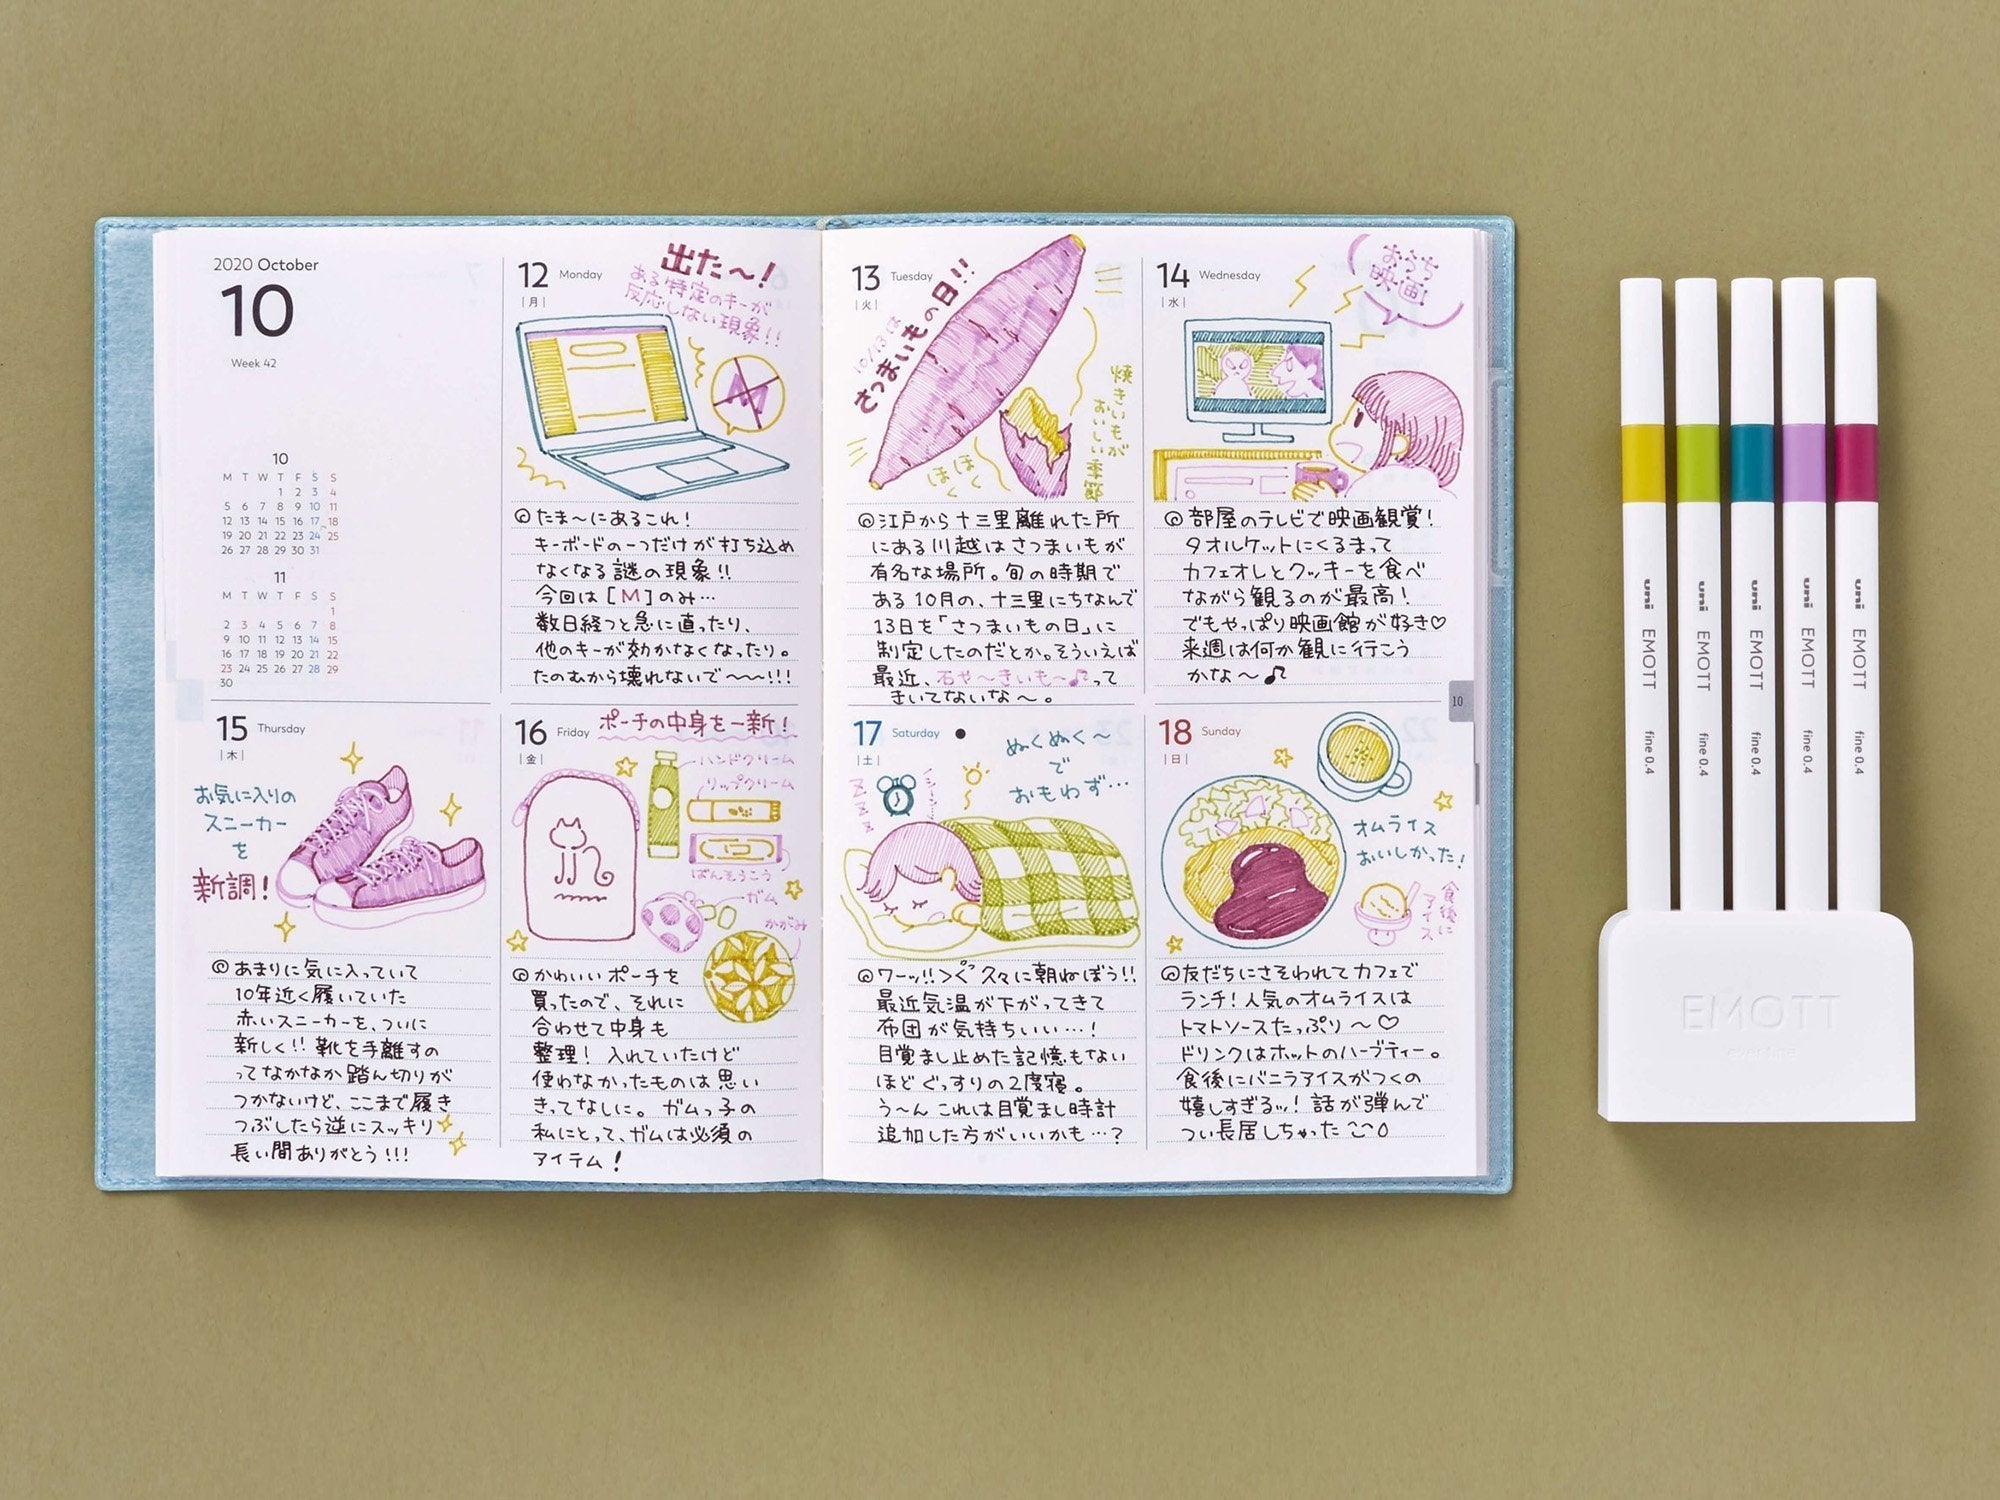 2020 October
10
Week 42
10
M T W T F S S
1 2 3 4
5 6 7 8 9 10 11
12 13 14 15 16 17 18
19 20 21 22 23 24 25
26 27 28 29 30 31
11
M T W T F S S
1
2 3 4 5 6 7 8
9 10 11 12 13 14 15
16 17 18 19 20 21 22
23 24 25 26 27 28 29
30
12 Monday
|月|
出た〜!
ある特定のキーが
反応しない現象!!
M
たま〜にあるこれ!
キーボードの一つだけが打ち込め
なくなる謎の現象!!
今回は[M]のみ…
数日経つと急に直ったり、
他のキーが効かなくなったり。
たのむから壊れないで〜〜〜!!!
13 Tuesday
|火|
10/13は
さつまいもの日!!
焼きいもが
おいしい季節
ほくほく
江戸から十三里離れた所
にある川越はさつまいもが
有名な場所。旬の時期で
ある10月の、十三里にちなんで
13日を「さつまいもの日」に
制定したのだとか。そういえば
最近、石や〜きいも〜♫って
きいてないな〜。
14 Wednesday
|水|
おうち
映画!
部屋のテレビで映画観賞!
タオルケットにくるまって
カフェオレとクッキーを食べ
ながら観るのが最高!
でもやっぱり映画館が好き♡
来週は何か観に行こう
かな〜♫
10
15 Thursday
|木|
お気に入りの
スニーカー
を
新調!
あまりに気に入っていて
10年近く履いていた
赤いスニーカーを、ついに
新しく!!靴を手離すの
ってなかなか踏ん切りが
つかないけど、ここまで履き
つぶしたら逆にスッキリ
長い間ありがとう!!!
16 Friday
|金|
ポーチの中身を一新!
ハンドクリーム
リップクリーム
ばんそうこう
ガム
かがみ
かわいいポーチを
買ったので、それに
合わせて中身も
整理!入れていたけど
使わなかったものは思い
きってなしに。ガムっ子の
私にとって、ガムは必須の
アイテム!
17 Saturday ●
|土|
ぬくぬく〜
で
おもわず…
ZZZZ
ワーッ!! 久々に朝ねぼう!!
最近気温が下がってきて
布団が気持ちいい…!
目覚まし止めた記憶もない
ほどぐっすりの2度寝。
う〜んこれは目覚まし時計
追加した方がいいかも…?
18 Sunday
|日|
オムライス
おいしかった!
食後に
アイス
友だちにさそわれてカフェで
ランチ!人気のオムライスは
トマトソースたっぷり〜♡
ドリンクはホットのハーブティー。
食後にバニラアイスがつくの
嬉しすぎるッ!話が弾んで
つい長居しちゃった
uni EMOTT fine 0.4
uni EMOTT fine 0.4
uni EMOTT fine 0.4
uni EMOTT fine 0.4
uni EMOTT fine 0.4
EMOTT